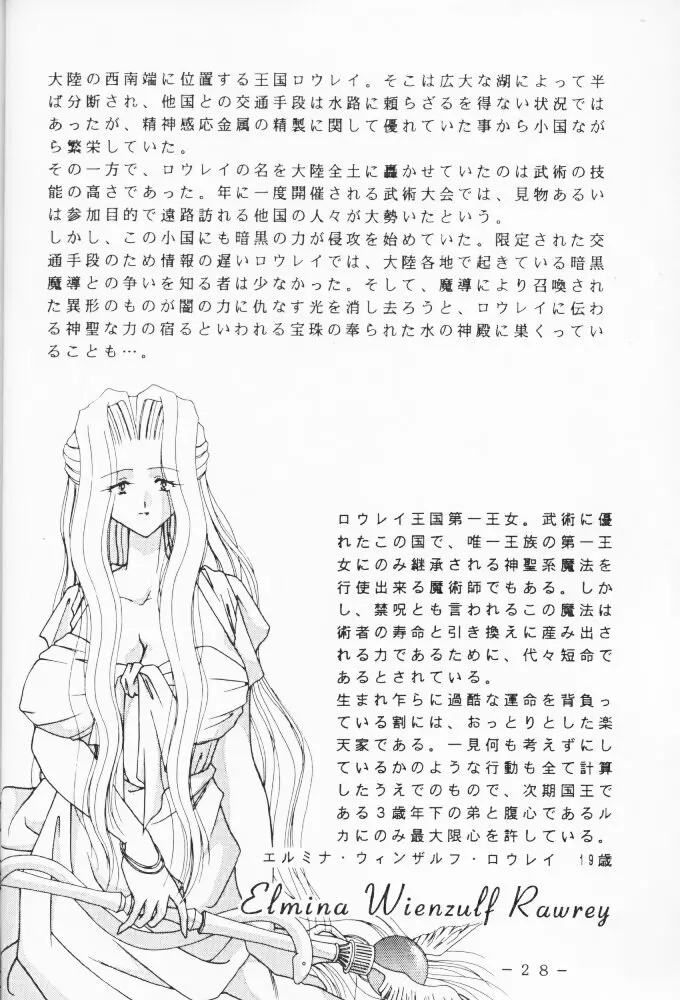 大陸の西南端に位置する王国ロウレイ。そこは広大な湖によって半
ば分断され、他国との交通手段は水路に頼らざるを得ない状況では
あったが、精神感応金属の精製に関して優れていた事から小国なが
ら繁栄していた。
その一方で、ロウレイの名を大陸全土に轟かせていたのは武術の技
能の高さであった。年に一度開催される武術大会では、見物あるい
は参加目的で遠路訪れる他国の人々が大勢いたという。
しかし、この小国にも暗黒の力が侵攻を始めていた。限定された交
通手段のため情報の遅いロウレイでは、大陸各地で起きている暗黒
魔導との争いを知る者は少なかった。そして、魔導により召喚され
た異形のものが闇の力に仇なす光を消し去ろうと、ロウレイに伝わ
る神聖な力の宿るといわれる宝珠の奉られた水の神殿に巣くってい
ることも…。
ロウレイ王国第一王女。武術に優
れたこの国で、唯一王族の第一王
女にのみ継承される神聖系魔法を
行使出来る魔術師でもある。しか
し、禁呪とも言われるこの魔法は
術者の寿命と引き換えに産み出さ
れる力であるために、代々短命で
あるとされている。
生まれ乍らに過酷な運命を背負っ
ている割には、おっとりとした楽
天家である。一見何も考えずにし
ているかのような行動も全て計算
したうえでのもので、次期国王で
ある3歳年下の弟と腹心であるル
カにのみ最大限心を許している。
エルミナ・ウィンザルフ・ロウレイ 19歳
Elmina Wienzulf Rawrey
－28－